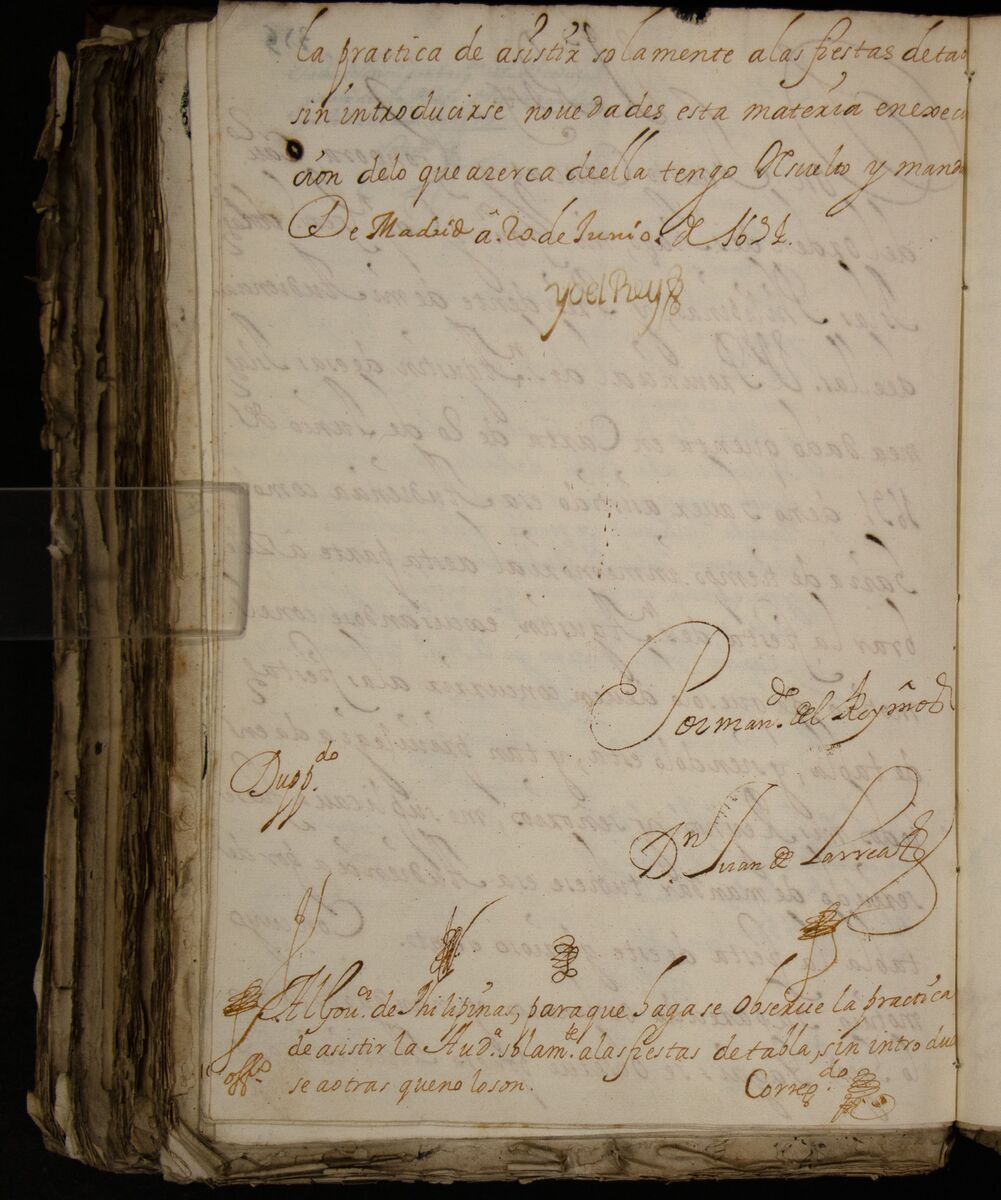 la practica de asistir solamente a las fiestas de tab
sin introducirse novedades esta materia en execu
ción delo que azerca deella tengo Resuelto y manda
De Madrid a 20 de Junio. de
yo el Rey
Por man.do del Rey nro s
Dupp.do
D.n Juan de Larrea
Al Gou.or de Philipinas, para que haga se obserue la practica
de asistir la Aud.a solam.te a las fiestas de tabla, sin introdu
se a otras que no lo son. Correg.do